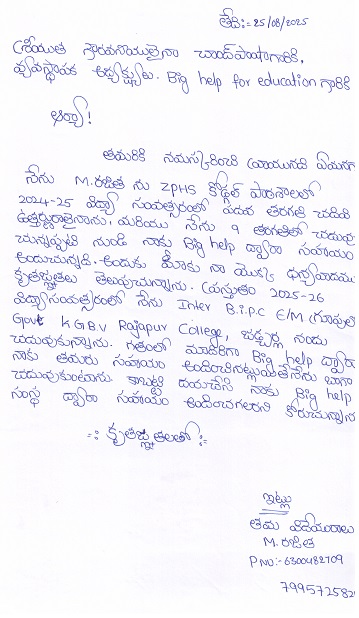 తేది:- 25/08/2025
శ్రీయుత గౌరవనీయులైనా చాంద్‌పాషాగారికి,
వ్యవస్థాపక అధ్యక్షులు. Big help for education గారికి
ఆర్యా!
తమరికి నమస్కరించి వ్రాయునది ఏమనగా
నేను M.రజిత ను ZPHS కోడ్గల్ పాఠశాలలో
2024-25 విద్యా సంవత్సరంలో పదవ తరగతి చదివి
ఉత్తీర్ణురాలైనాను, మరియు నేను 9 తరగతిలో చదువు
చున్నప్పటి నుండి నాకు Big help ద్వారా సహాయం
అందుచున్నది. అందుకు మీకు నా యొక్క ధన్యవాదములు
కృతజ్ఞతలు తెలుపుచున్నాను. ప్రస్తుతం 2025-26
విద్యాసంవత్సరంలో నేను Inter B.i.P.C E/M గ్రూపులో
Govt KGBV Rajapur College, జడ్చర్ల నందు
చదువుకున్నాను. గతంలో మాదిరిగా Big help ద్వారా
నాకు తమరు సహాయం అందించినట్లయితేనేను బాగా
చదువుకుంటాను. కాబట్టి దయచేసి నాకు Big help
సంస్థ ద్వారా సహాయం అందించగలరని కోరుచున్నాను
-:: కృతజ్ఞతలతో ::-
ఇట్లు
తమ విధేయురాలు
M.రజిత
P NO:- 6300482709
799572582